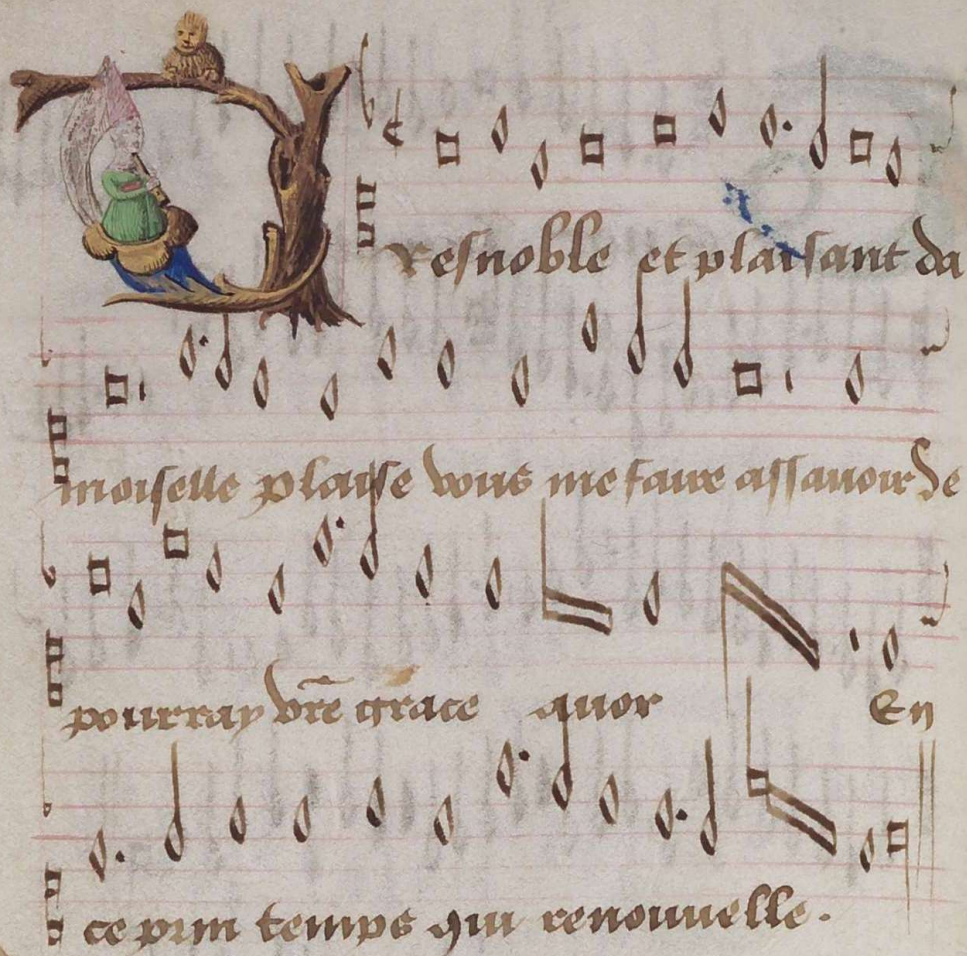 Tresnoble et plaisant da
moiselle plaise vous me faire assavoir se
pourray vr̃e grace avoir En
ce prin temps qui renouvelle.